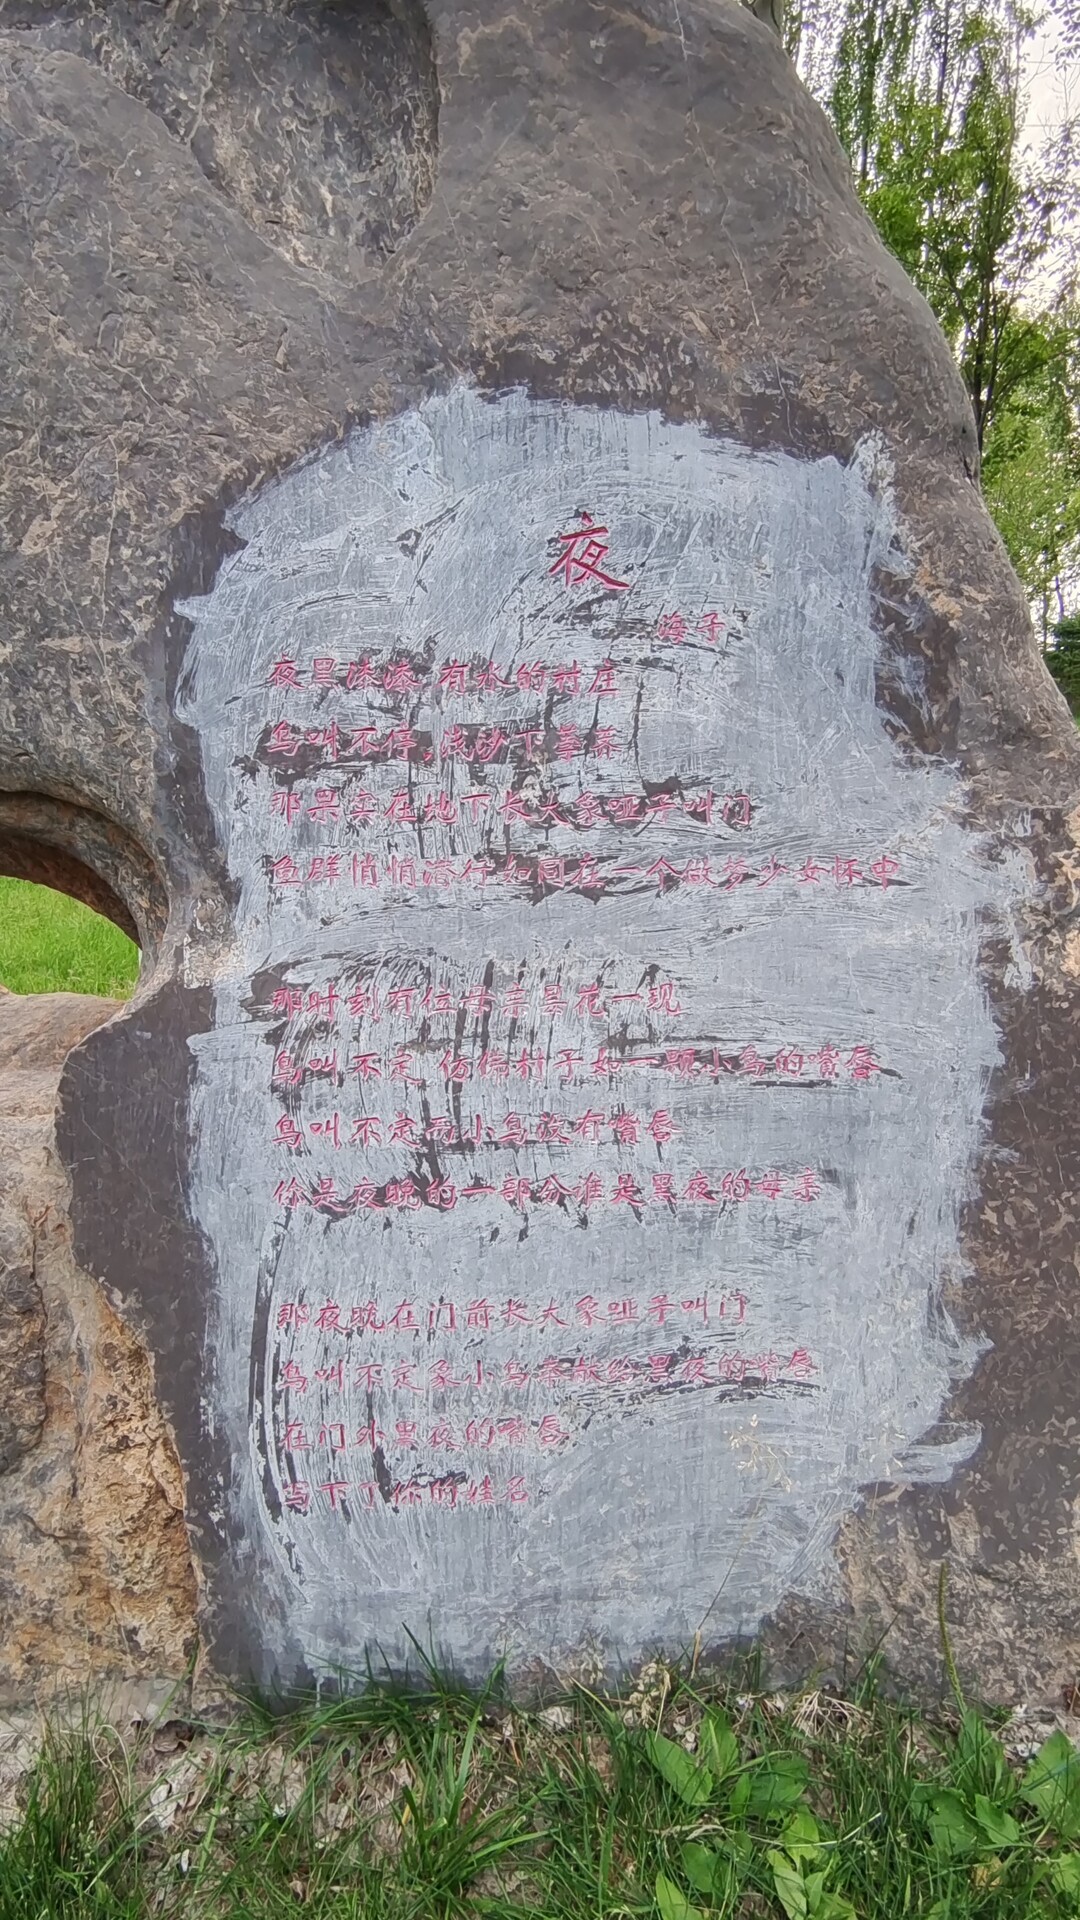 夜
海子
夜黑漆漆 有水的村庄
鸟叫不停,浅沙下荸荠
那果实在地下长大象哑子叫门
鱼群悄悄潜行如同在一个做梦少女怀中
那时刻有位母亲昙花一现
鸟叫不定 仿佛村子如一颗小鸟的嘴唇
鸟叫不定而小鸟没有嘴唇
你是夜晚的一部分谁是黑夜的母亲
那夜晚在门前长大象哑子叫门
鸟叫不定象小鸟奉献给黑夜的嘴唇
在门外黑夜的嘴唇
写下了你的姓名